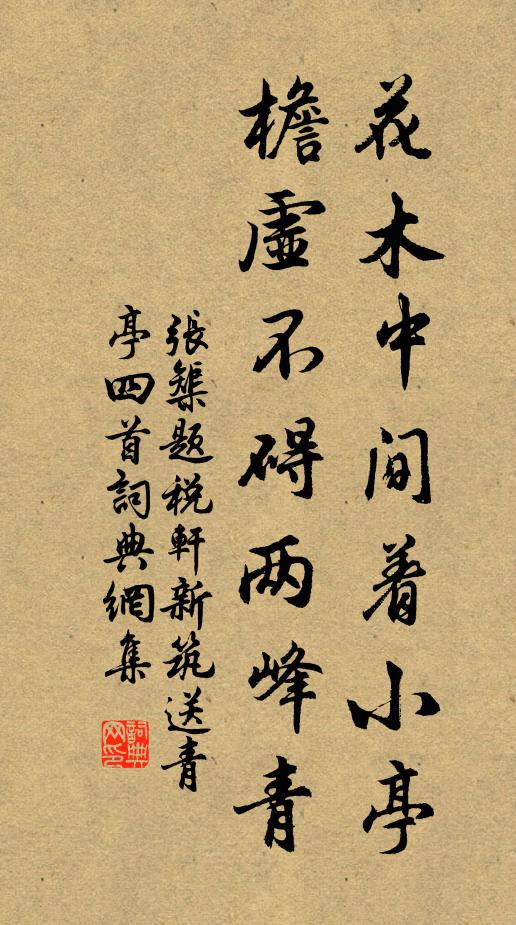 花木中间着小亭
檐虚不碍两峰青
張榘題税軒新筑送青
亭四首詞典網集
詞典网印